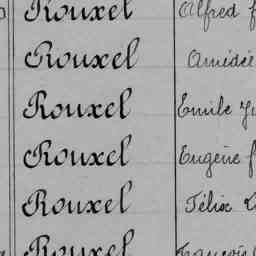 Rouxel Alfred
Rouxel Amédée
Rouxel Emile
Rouxel Eugène
Rouxel Félix
Rouxel François